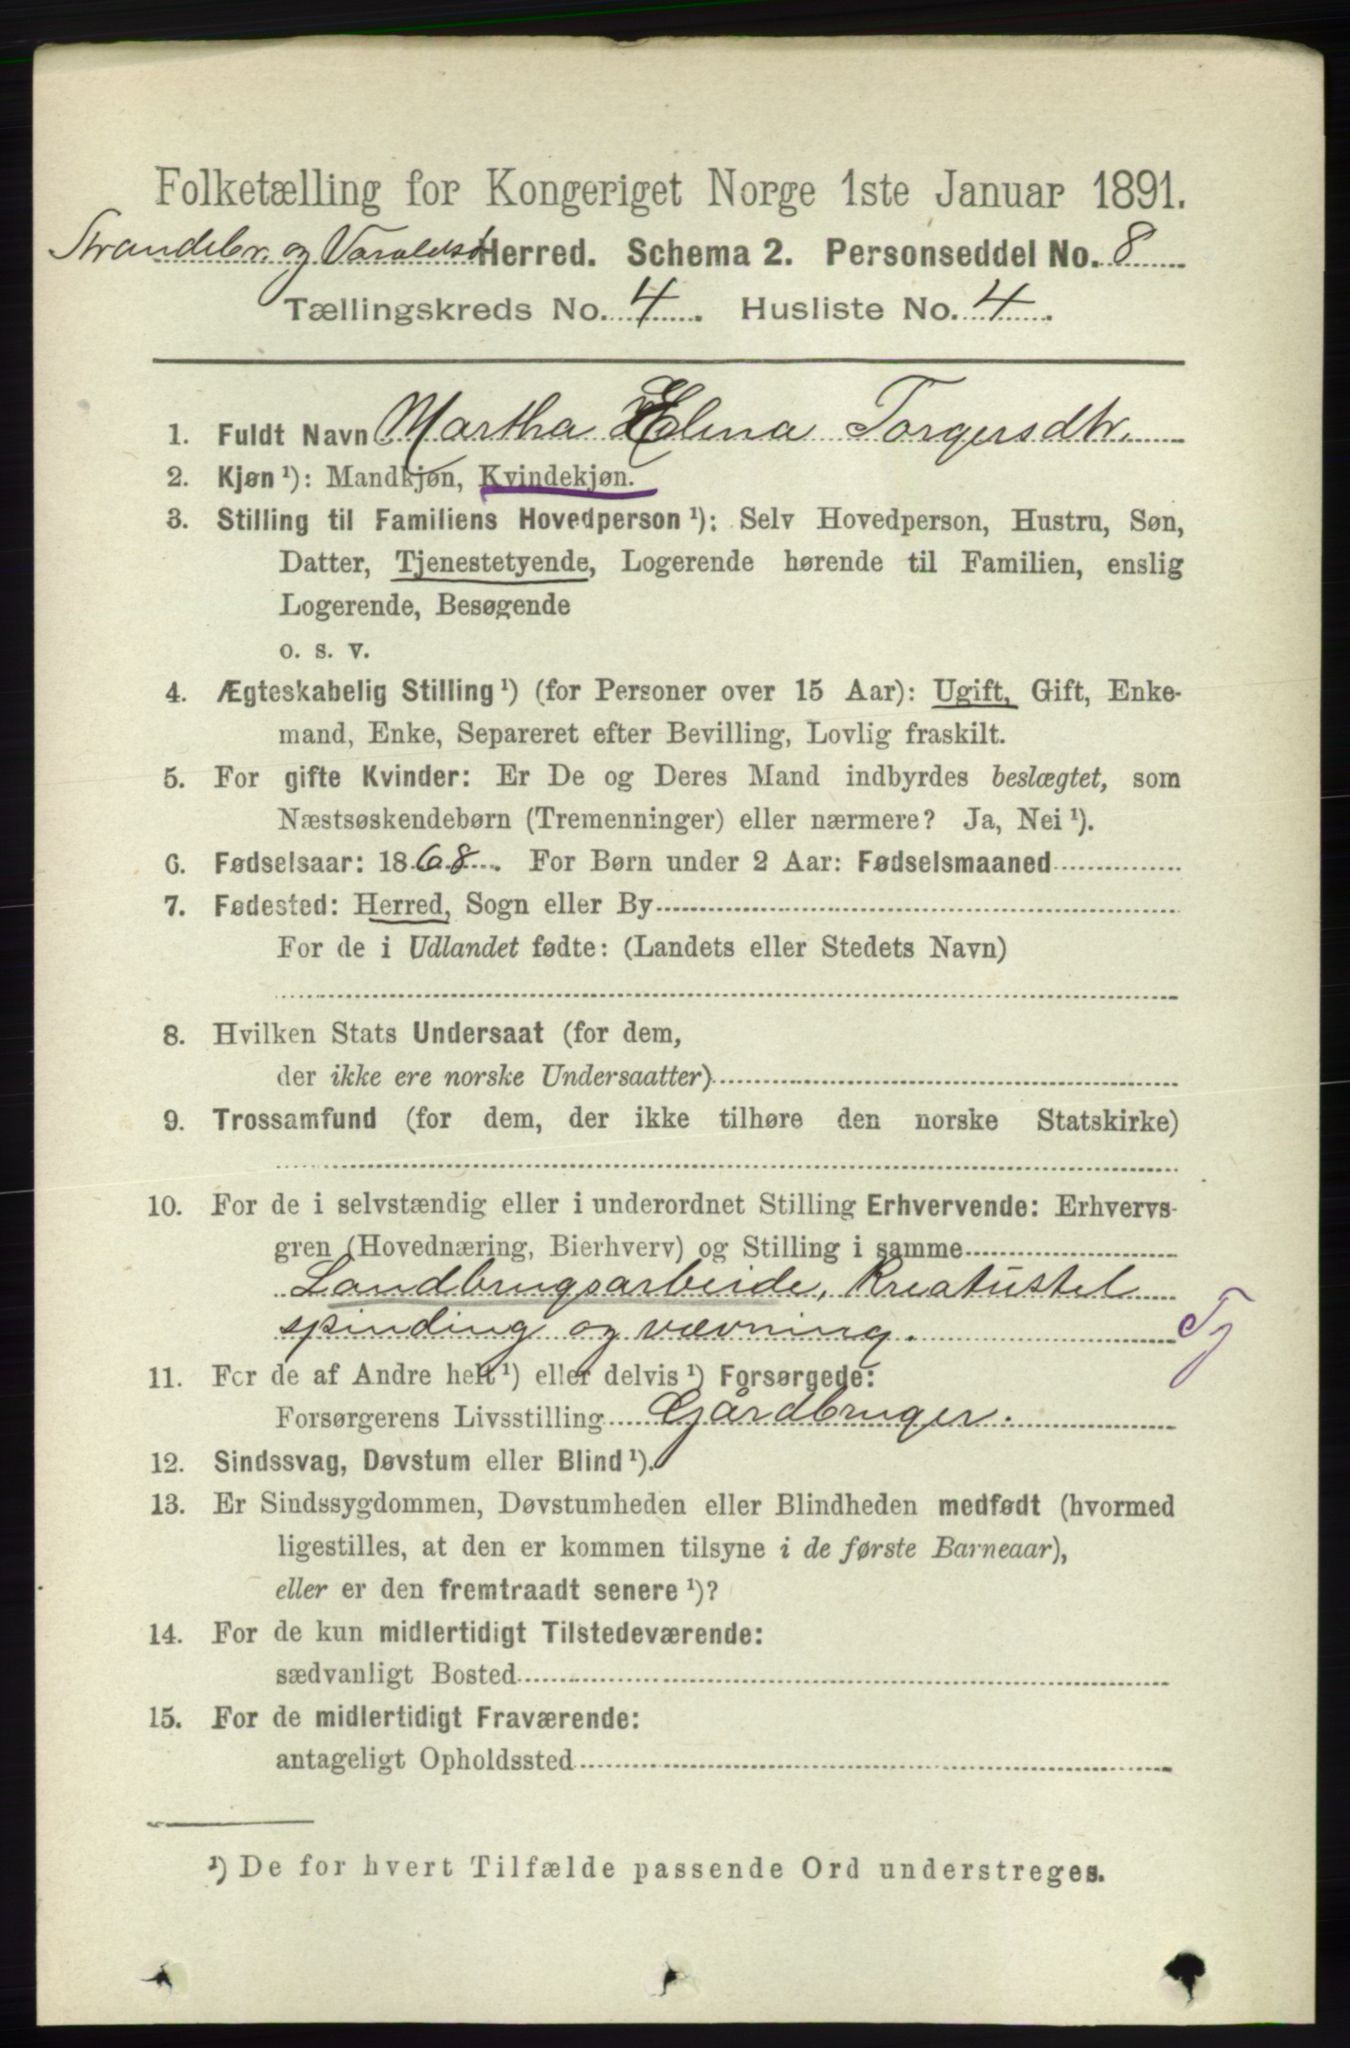 Folketælling for Kongeriget Norge 1ste Januar 1891.
Strandebr. og Varaldsø Herred. Schema 2. Personseddel No. 8
Tællingskreds No. 4. Husliste No. 4.
1. Fuldt Navn Martha Elina Torgersdtr.
2. Kjøn¹): Mandkjøn, Kvindekjøn.
3. Stilling til Familiens Hovedperson¹): Selv Hovedperson, Hustru, Søn,
Datter, Tjenestetyende, Logerende hørende til Familien, enslig
Logerende, Besøgende
o. s. v.
4. Ægteskabelig Stilling¹) (for Personer over 15 Aar): Ugift, Gift, Enke-
mand, Enke, Separeret efter Bevilling, Lovlig fraskilt.
5. For gifte Kvinder: Er De og Deres Mand indbyrdes beslægtet, som
Næstsøskendebørn (Tremenninger) eller nærmere? Ja, Nei¹).
6. Fødselsaar: 1868. For Børn under 2 Aar: Fødselsmaaned
7. Fødested: Herred, Sogn eller By
For de i Udlandet fødte: (Landets eller Stedets Navn)
8. Hvilken Stats Undersaat (for dem,
der ikke ere norske Undersaatter)
9. Trossamfund (for dem, der ikke tilhøre den norske Statskirke)
10. For de i selvstændig eller i underordnet Stilling Erhvervende: Erhvervs-
gren (Hovednæring, Bierhverv) og Stilling i samme
Landbrugsarbeide, Kreaturstel
spinding og vævning. Tj
11. For de af Andre helt¹) eller delvis¹) Forsørgede:
Forsørgerens Livsstilling Gårdbruger.
12. Sindssvag, Døvstum eller Blind¹).
13. Er Sindssygdommen, Døvstumheden eller Blindheden medfødt (hvormed
ligestilles, at den er kommen tilsyne i de første Barneaar),
eller er den fremtraadt senere¹)?
14. For de kun midlertidigt Tilstedeværende:
sædvanligt Bosted
15. For de midlertidigt Fraværende:
antageligt Opholdssted
¹) De for hvert Tilfælde passende Ord understreges.